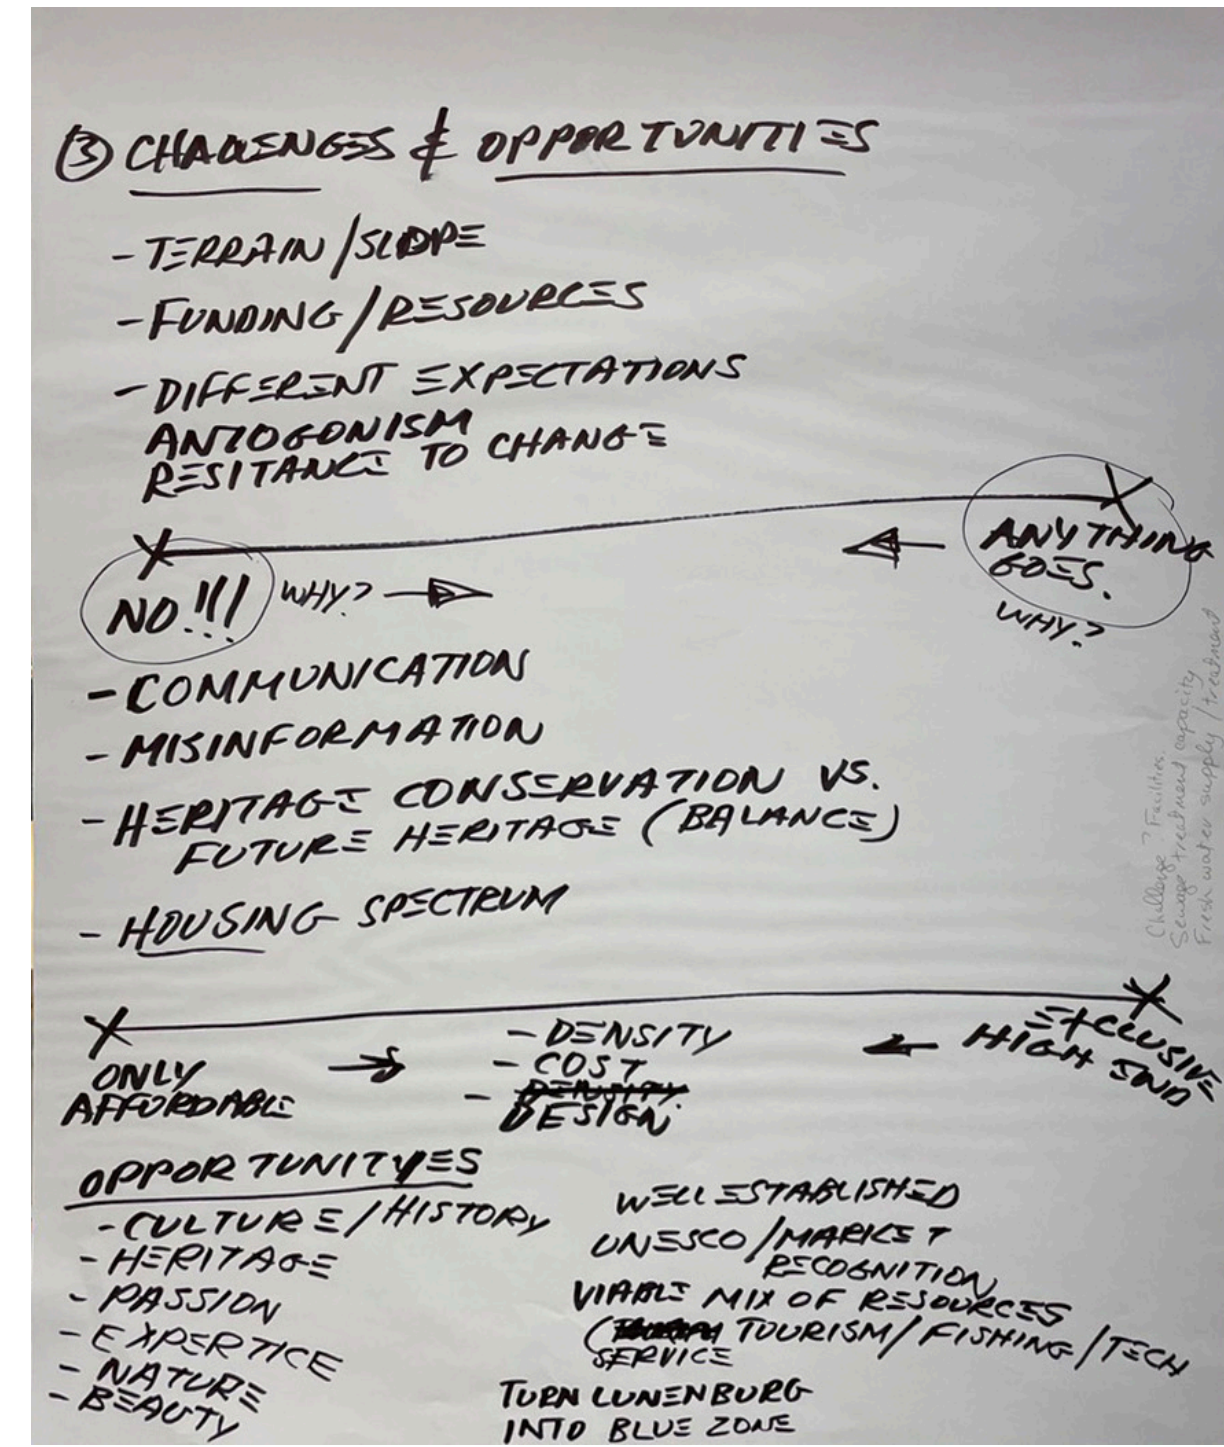 ③ CHALLENGES & OPPORTUNITIES
- TERRAIN/SLOPE
- FUNDING/RESOURCES
- DIFFERENT EXPECTATIONS
ANTOGONISM
RESITANCE TO CHANGE
NO!!! WHY?
ANYTHING
GOES.
WHY?
- COMMUNICATION
- MISINFORMATION
- HERITAGE CONSERVATION VS.
FUTURE HERITAGE (BALANCE)
- HOUSING SPECTRUM
Challenge? Facilities.
Sewage treatment capacity
Fresh water supply/treatment
ONLY
AFFORDABLE
- DENSITY
- COST
- DENSITY
DESIGN
EXCLUSIVE
HIGH END
OPPORTUNITYES
- CULTURE/HISTORY
- HERITAGE
- PASSION
- EXPERTICE
- NATURE
- BEAUTY
WELL ESTABLISHED
UNESCO/MARKET
RECOGNITION
VIABLE MIX OF RESOURCES
(TOURISM/FISHING/TECH
SERVICE
TURN LUNENBURG
INTO BLUE ZONE